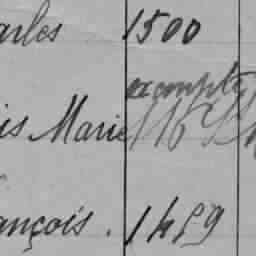 arles 1500
exempté
is Marie
ançois. 1489